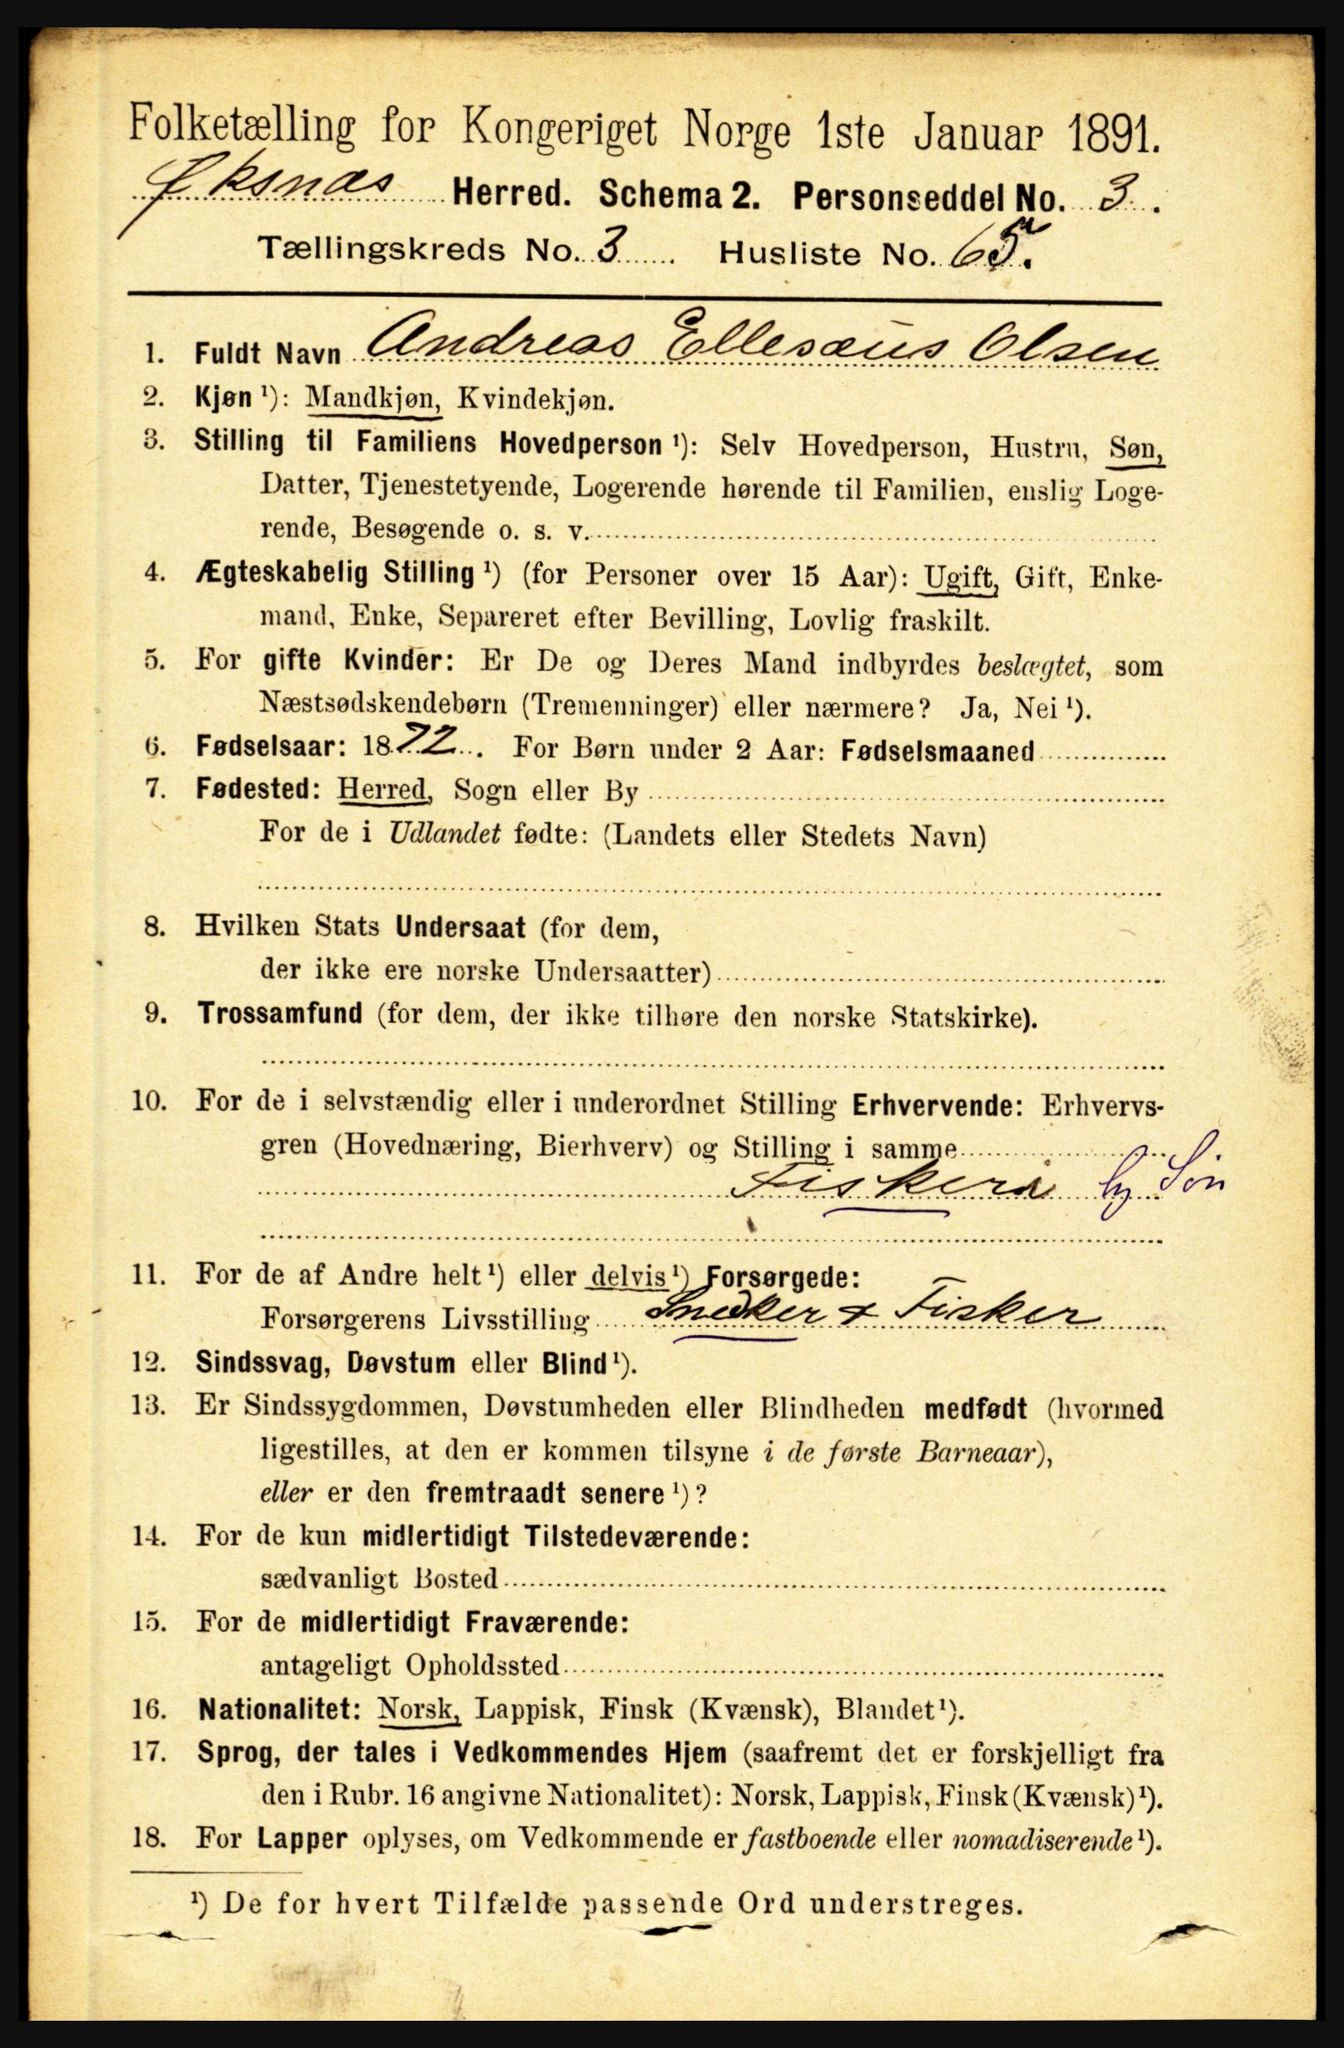 Folketælling for Kongeriget Norge 1ste Januar 1891.
Øksnæs Herred. Schema 2. Personseddel No. 3.
Tællingskreds No. 3 Husliste No. 65.
1. Fuldt Navn Andreas Ellesæus Olsen
2. Kjøn ¹): Mandkjøn, Kvindekjøn.
3. Stilling til Familiens Hovedperson ¹): Selv Hovedperson, Hustru, Søn,
Datter, Tjenestetyende, Logerende hørende til Familien, enslig Loge-
rende, Besøgende o. s. v.
4. Ægteskabelig Stilling ¹) (for Personer over 15 Aar): Ugift, Gift, Enke-
mand, Enke, Separeret efter Bevilling, Lovlig fraskilt.
5. For gifte Kvinder: Er De og Deres Mand indbyrdes beslægtet, som
Næstsødskendebørn (Tremenninger) eller nærmere? Ja, Nei ¹).
6. Fødselsaar: 1872. For Børn under 2 Aar: Fødselsmaaned
7. Fødested: Herred, Sogn eller By
For de i Udlandet fødte: (Landets eller Stedets Navn)
8. Hvilken Stats Undersaat (for dem,
der ikke ere norske Undersaatter)
9. Trossamfund (for dem, der ikke tilhøre den norske Statskirke).
10. For de i selvstændig eller i underordnet Stilling Erhvervende: Erhvervs-
gren (Hovednæring, Bierhverv) og Stilling i samme
Fiskeri hj Søn
11. For de af Andre helt ¹) eller delvis ¹) Forsørgede:
Forsørgerens Livsstilling Snedker & Fisker
12. Sindssvag, Døvstum eller Blind ¹).
13. Er Sindssygdommen, Døvstumheden eller Blindheden medfødt (hvormed
ligestilles, at den er kommen tilsyne i de første Barneaar),
eller er den fremtraadt senere ¹)?
14. For de kun midlertidigt Tilstedeværende:
sædvanligt Bosted
15. For de midlertidigt Fraværende:
antageligt Opholdssted
16. Nationalitet: Norsk, Lappisk, Finsk (Kvænsk), Blandet ¹).
17. Sprog, der tales i Vedkommendes Hjem (saafremt det er forskjelligt fra
den i Rubr. 16 angivne Nationalitet): Norsk, Lappisk, Finsk (Kvænsk) ¹).
18. For Lapper oplyses, om Vedkommende er fastboende eller nomadiserende ¹).
¹) De for hvert Tilfælde passende Ord understreges.